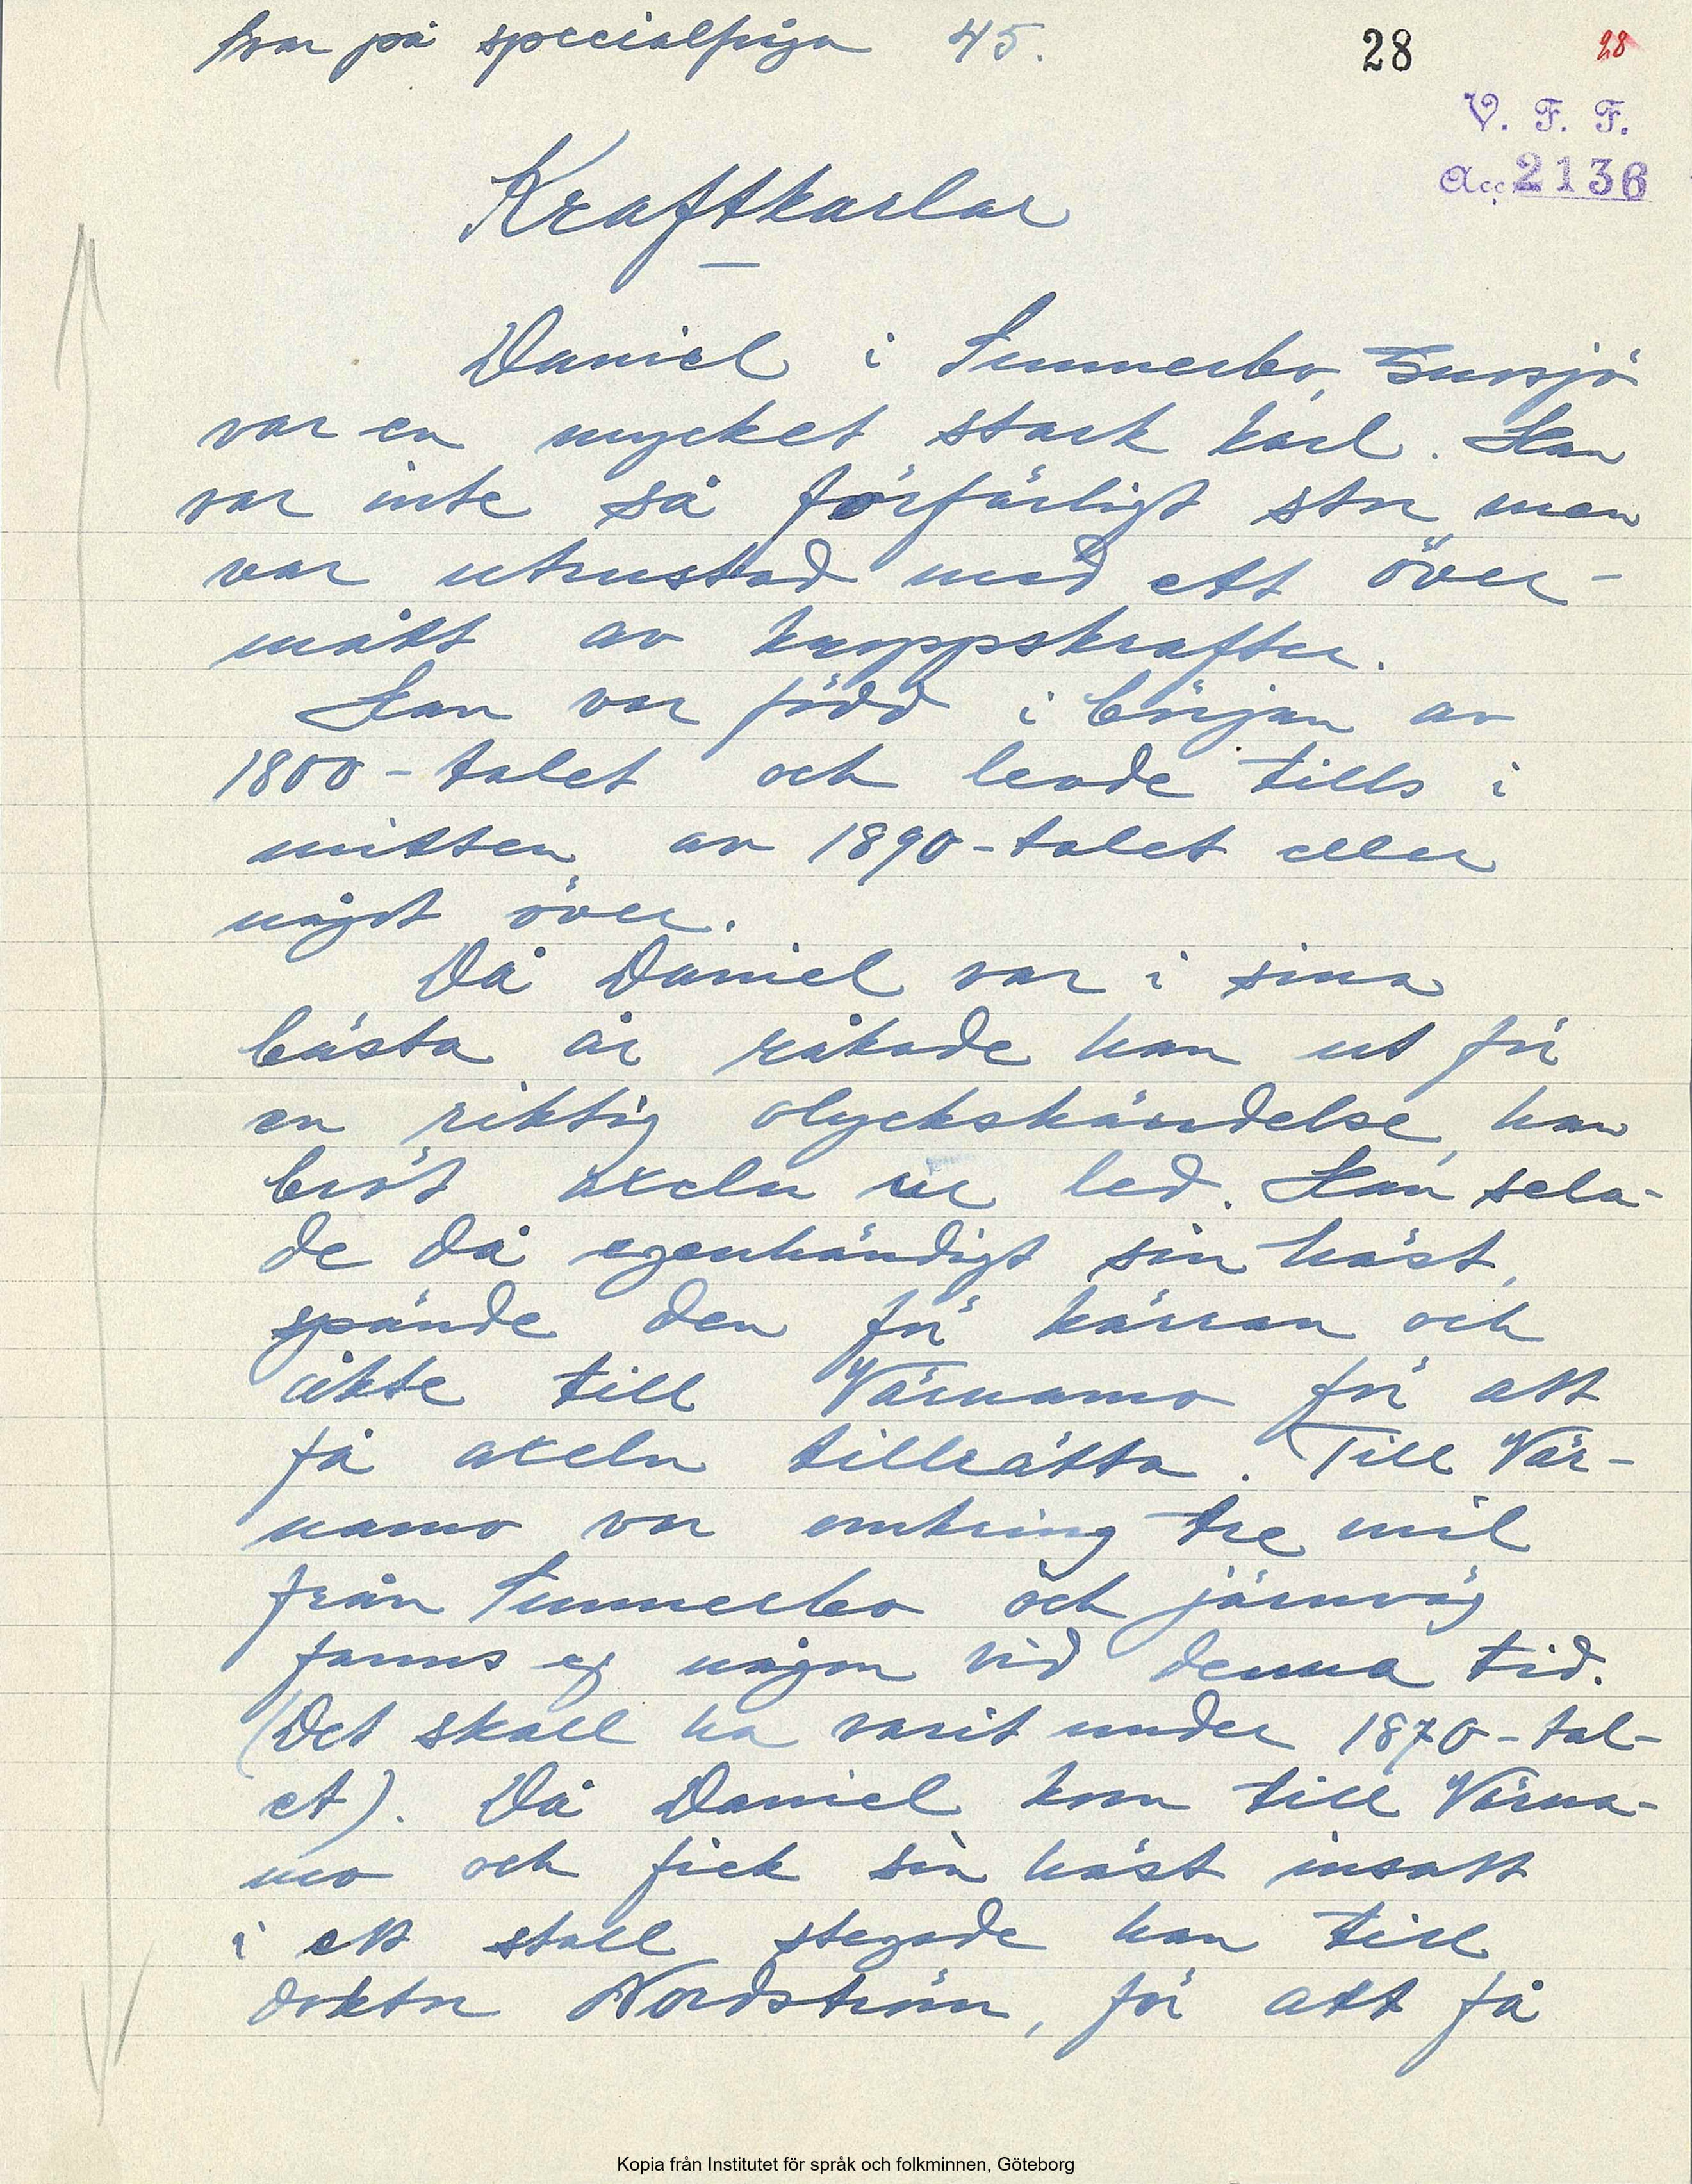 Svar på specialfråga 45.
28
28
V. F. F.
Acc. 2136
Kraftkarlar
Daniel i Sunnerbo,
var en mycket stark karl. Han
var inte så förfärligt stor men
var utrustad med ett över-
mått av kroppskrafter.
Han var född i början av
1800-talet och levde tills i
mitten av 1890-talet eller
något över.
Då Daniel var i sina
bästa år råkade han ut för
en riktig olyckshändelse, han
bröt axeln ur led. Han sela-
de då egenhändigt sin häst,
spände den för kärran och
åkte till Värnamo för att
få axeln tillrätta. Till Vär-
namo var omkring tre mil
från Sunnerbo och järnväg
fanns ej någon vid denna tid.
(Det skall ha varit under 1870-tal-
et). Då Daniel kom till Värna-
mo och fick sin häst insatt
i ett stall stegade han till
doktor Nordström, för att få
Kopia från Institutet för språk och folkminnen, Göteborg